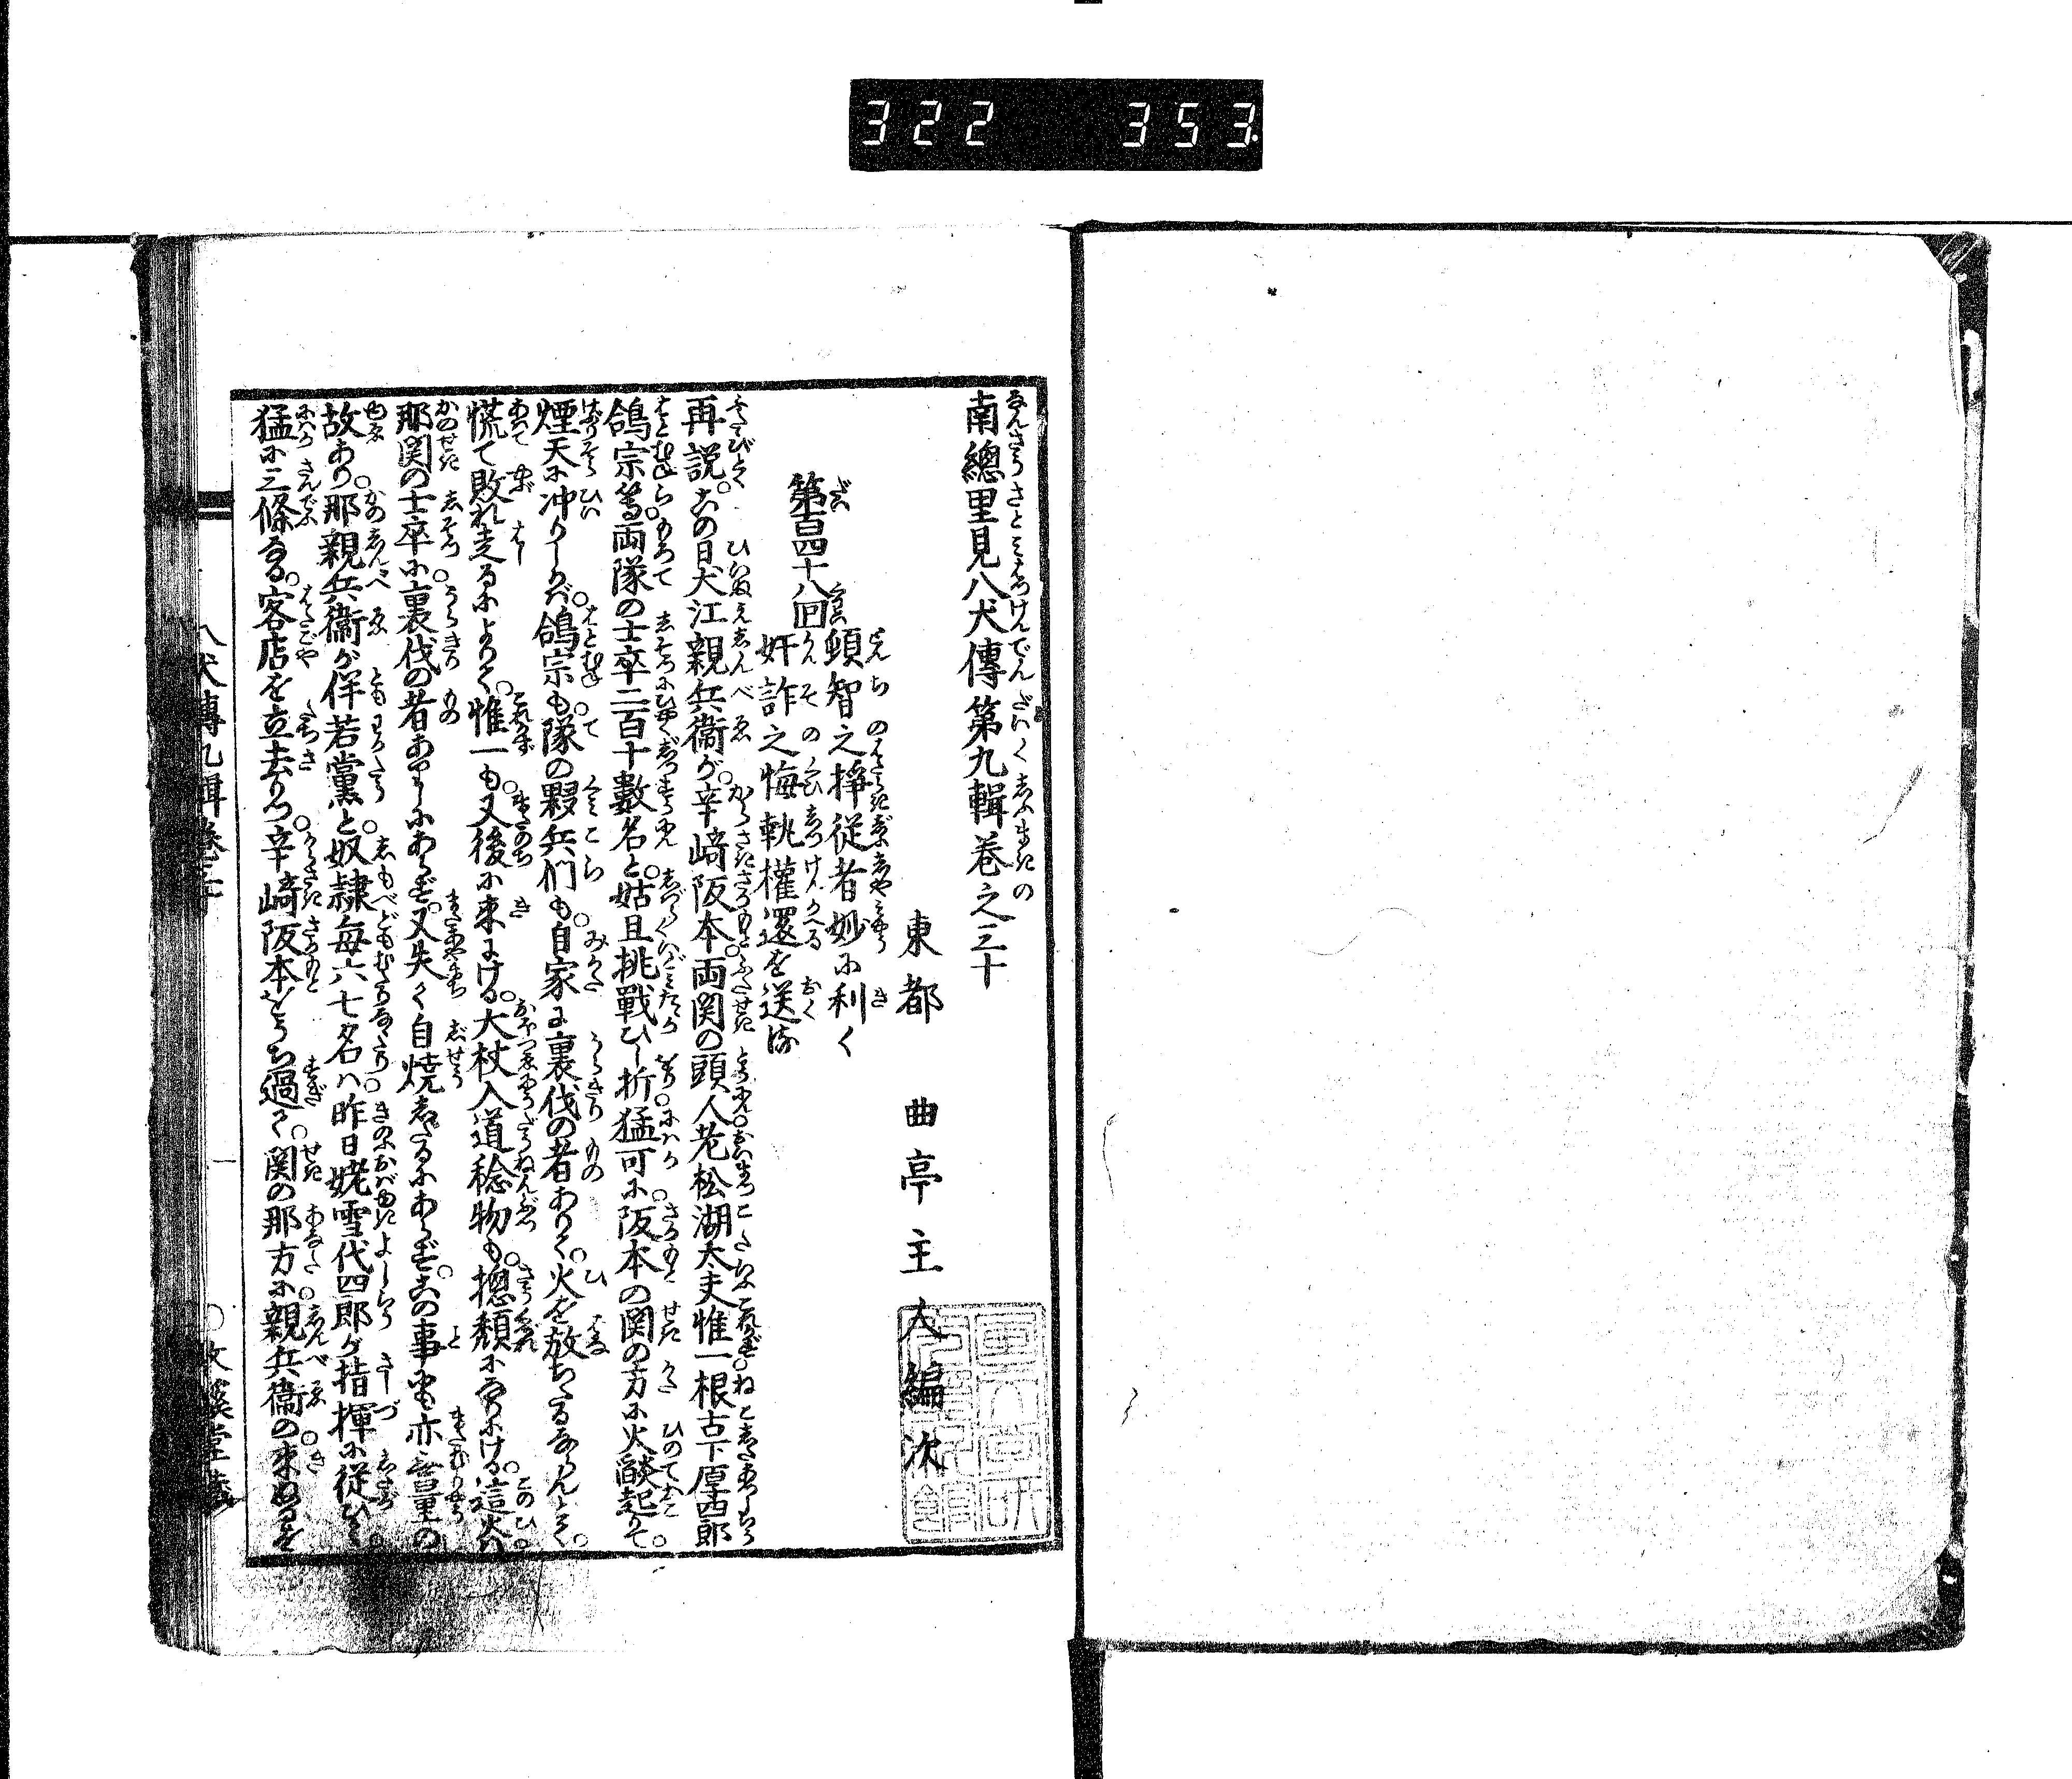 322 353
南總里見八犬傳第九輯巻之三十
東都 曲亭主人編次
第百四十八回 頓智之掙従者妙に利く
奸詐之悔執權還を送る
再説この日犬江親兵衞が辛﨑阪本両関の頭人老松湖太夫惟一根古下厚四郎
鴿宗等両隊の士卒二百十數名と姑且挑戰ひし折猛可に阪本の関の方に火燄起りて
煙天に冲りしかば鴿宗も隊の夥兵們も自家に裏伐の者ありて火を放ちたるならんとて
慌て敗れ走るによりて惟一も又後に來にける大杖入道稔物も摠頽になりにける這火は
那関の士卒に裏伐の者ありしにあらず又失て自焼したるにあらずこの事も亦無量の
故あり那親兵衞が伴若黨と奴隷毎六七名は昨日姥雪代四郎が指揮に従ひて
猛に三條なる客店を立去りつ辛﨑阪本をうち過て関の那方に親兵衞の來ぬるを
八犬傳九輯巻三十
文溪堂藏